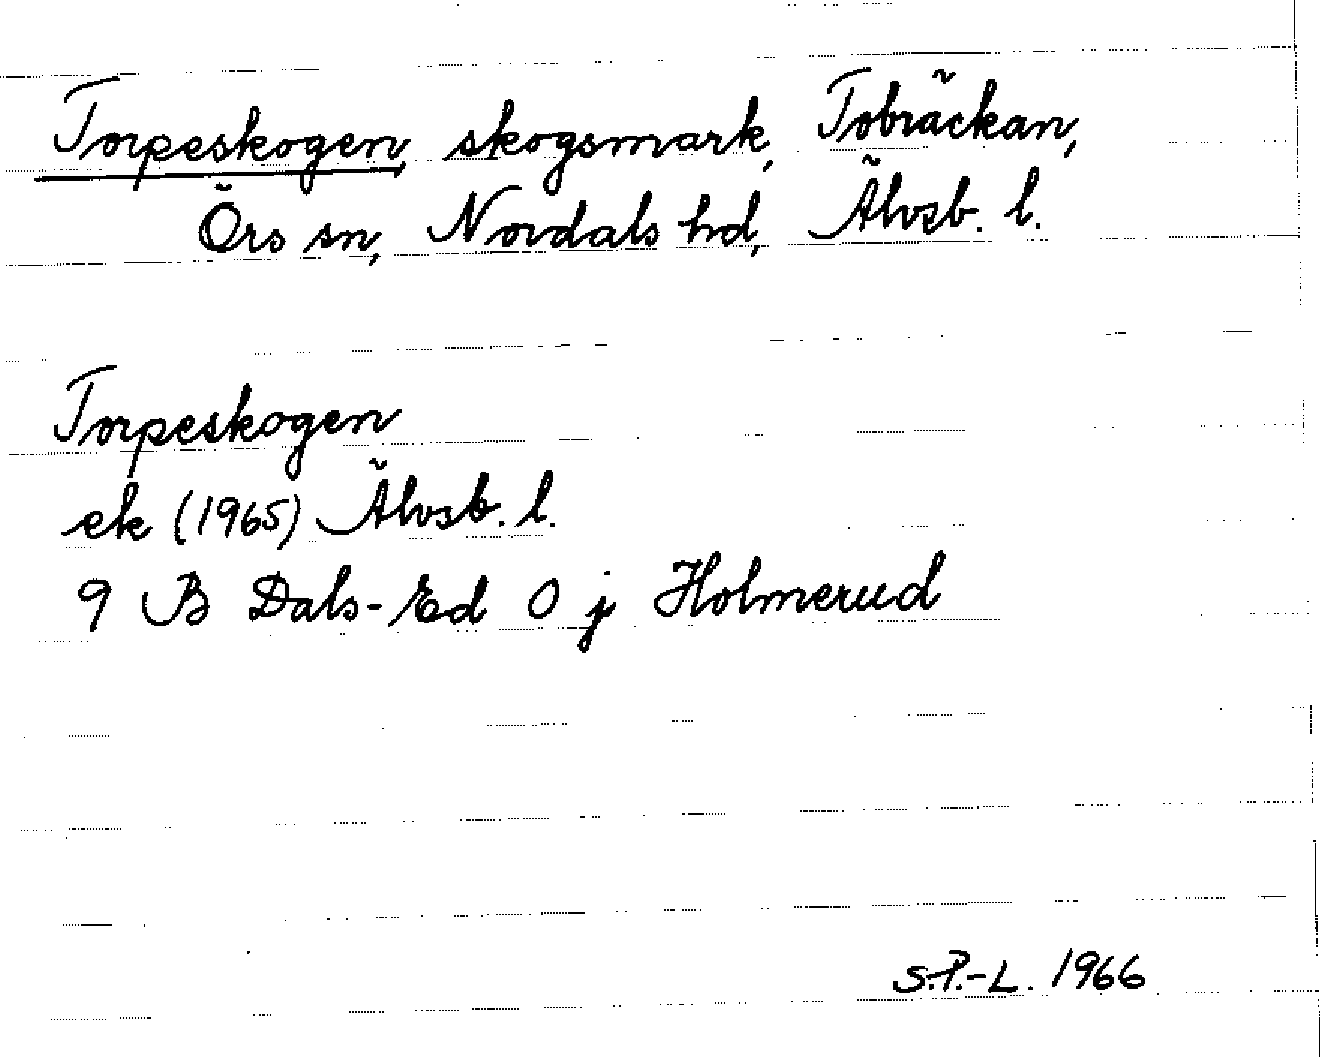 Torpeskogen, skogsmark, Tobräckan,
Örs sn, Nordals hd, Älvsb. l.
Torpeskogen
ek (1965) Älvsb. l.
9 B Dals-Ed 0 j Holmerud
S.P.-L. 1966